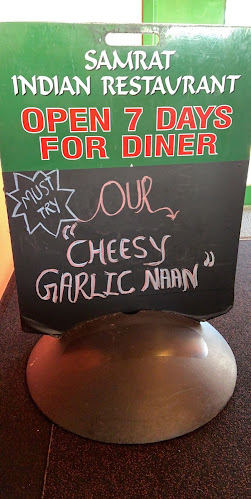 SAMRAT
INDIAN RESTAURANT
OPEN 7 DAYS
FOR DINER
MUST
TRY
OUR
"CHEESY
GARLIC NAAN"